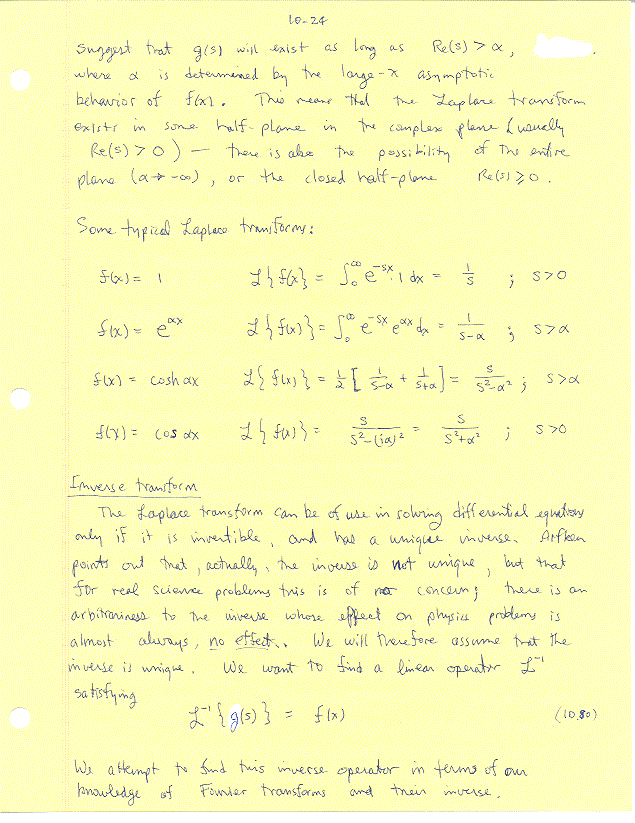 10-24
suggest that g(s) will exist as long as Re(s) > α,
where α is determined by the large-x asymptotic
behavior of f(x). This means that the Laplace transform
exists in some half-plane in the complex plane (usually
Re(s) > 0) — there is also the possibility of the entire
plane (α → -∞), or the closed half-plane Re(s) ≥ 0.
Some typical Laplace transforms:
f(x) = 1 ℒ{f(x)} = ∫₀^∞ e^{-sx}·1 dx = 1/s ; s>0
f(x) = e^{αx} ℒ{f(x)} = ∫₀^∞ e^{-sx} e^{αx} dx = 1/(s-α) ; s>α
f(x) = cosh αx ℒ{f(x)} = 1/2 [1/(s-α) + 1/(s+α)] = s/(s²-α²) ; s>α
f(x) = cos αx ℒ{f(x)} = s/(s²-(iα)²) = s/(s²+α²) ; s>0
Inverse transform
The Laplace transform can be of use in solving differential equations
only if it is invertible, and has a unique inverse. Arfken
points out that, actually, the inverse is not unique, but that
for real science problems this is of no concern; there is an
arbitrariness to the inverse whose effect on physics problems is
almost always, no effect. We will therefore assume that the
inverse is unique. We want to find a linear operator ℒ⁻¹
satisfying
ℒ⁻¹{g(s)} = f(x) (10.80)
We attempt to find this inverse operator in terms of our
knowledge of Fourier transforms and their inverse.